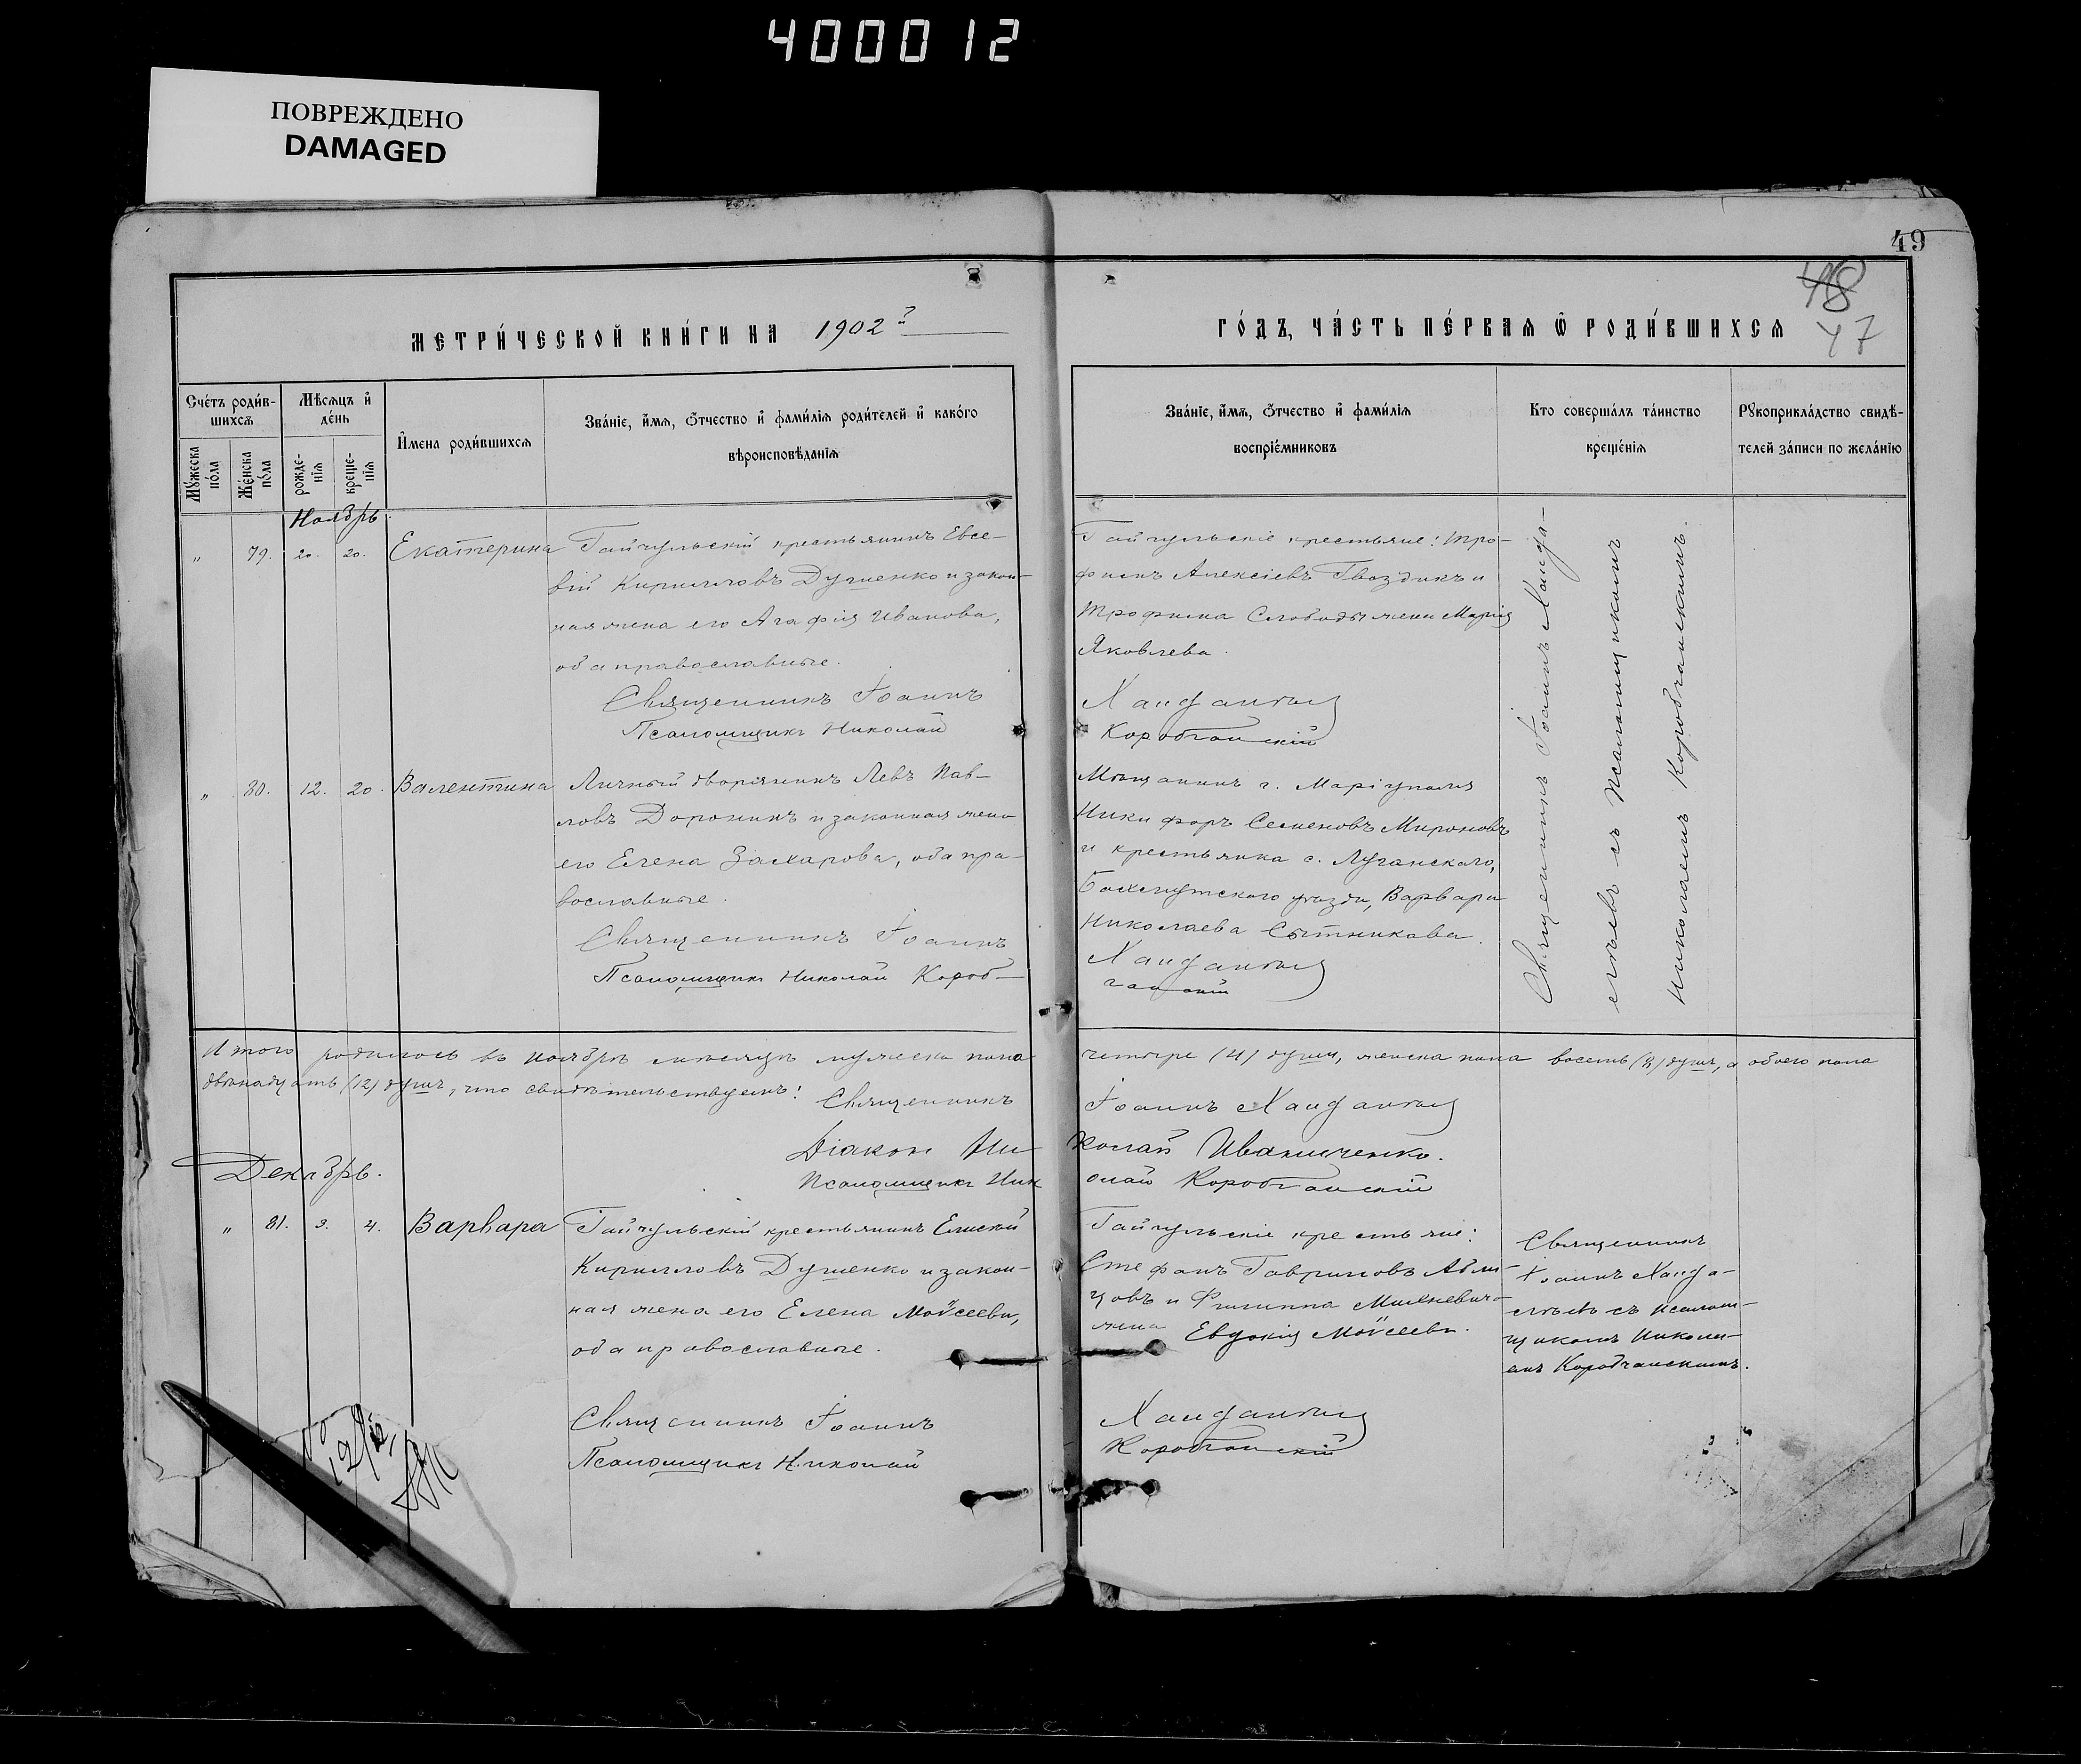 400012
ПОВРЕЖДЕНО
DAMAGED
49
48
47
МЕТРИ́ЧЕСКОЙ КНИ́ГИ НА 1902 г.
ГО́ДЪ, ЧА́СТЬ ПЕ́РВАѦ Ѿ РОДИ́ВШИХСѦ
Сче́тъ роди́в-
шихсѧ
Мѣ́сѧцъ и҆
де́нь
Мꙋ́жеска
по́ла
Же́нска
по́ла
рожде-
нїѧ
креще-
нїѧ
И҆мена роди́вшихсѧ
Зва́нїе, и҆́мѧ, ѻ҆́тчество и҆ фами́лїѧ роди́телей и҆ како́го
вѣроисповѣ́данїѧ
Зва́нїе, и҆́мѧ, ѻ҆́тчество и҆ фами́лїѧ
воспрїе́мниковъ
Кто соверша́лъ та́инство
креще́нїѧ
Рꙋкоприкла́дство свидѣ́-
телей за́писи по жела́нїю
Ноябрь
" 79. 20. 20. Екатерина
Гайчульскій крестьянинъ Евсе-
вій Кирилловъ Душенко и закон-
ная жена его Агафія Иванова,
оба православные.
Священникъ Іоаннъ
Псаломщикъ Николай
Гайчульскіе крестьяне: Тро-
фимъ Алексіевъ Гвоздикъ и
Трофима Слободы жена Марія
Яковлева.
Хандалѣевъ
Коробчанскій
Священникъ Іоаннъ Ханда-
лѣевъ съ псаломщикомъ
Николаемъ Коробчанскимъ.
" 80. 12. 20. Валентина
Личный дворянинъ Левъ Пав-
ловъ Доронинъ и законная жена
его Елена Захарова, оба пра-
вославные.
Священникъ Іоаннъ
Псаломщикъ Николай Короб-
Мѣщанинъ г. Маріуполя
Никифоръ Семеновъ Мироновъ
и крестьянка с. Луганскаго,
Бахмутскаго уѣзда, Варвара
Николаева Сытникова.
Хандалѣевъ
чанскій
Итого родилось въ Ноябрѣ мѣсяцѣ мужеска пола четыре (4) души, женска пола восемь (8) душъ, а обоего пола
двѣнадцать (12) душъ, что свидѣтельствуемъ: Священникъ Іоаннъ Хандалѣевъ
Діаконъ Николай Иваниченко.
Псаломщикъ Николай Коробчанскій
Декабрь.
" 81. 3. 4. Варвара
Гайчульскій крестьянинъ Елисей
Кирилловъ Душенко и закон-
ная жена его Елена Моѵсеева,
оба православные.
Священникъ Іоаннъ
Псаломщикъ Николай
Гайчульскіе крестьяне:
Стефанъ Гавриловъ
и Филиппа Михневича
жена Евдокія Моѵсеева.
Хандалѣевъ
Коробчанскій
Священникъ
Іоаннъ Ханда-
лѣевъ съ псалом-
щикомъ Никола-
емъ Коробчанскимъ.